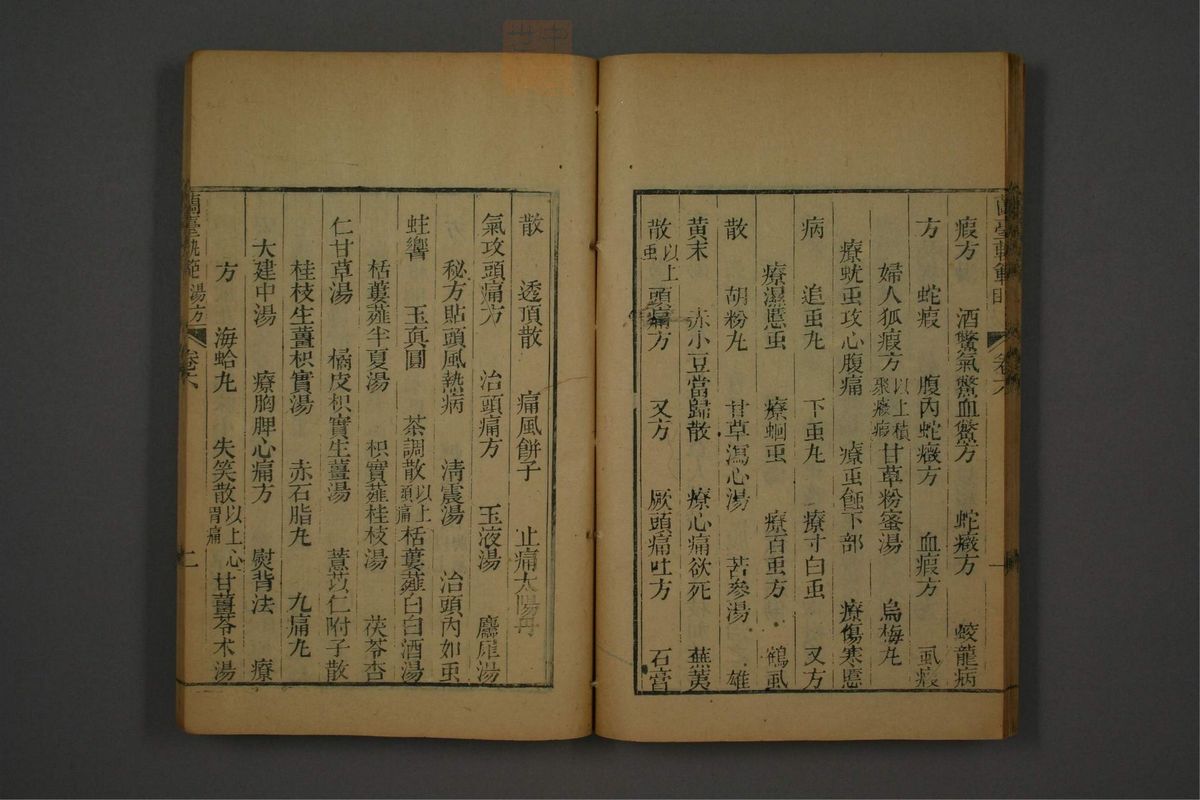 瘕方　酒鱉氣鱉血鱉方　蛇癥方　蛟龍病
方　蛇瘕　腹內蛇癥方　血瘕方　虱瘕
婦人狐瘕方以上積聚癥瘕甘草粉蜜湯　烏梅丸
療蚘虫攻心腹痛　療虫䘌下部　療傷寒䘌
病　追虫丸　下虫丸　療寸白虫　又方
療濕䘌虫　療蛔虫　療百虫方　鶴虱
散　胡粉丸　甘草瀉心湯　苦參湯　雄
黃末　赤小豆當歸散　療心痛欲死　蕪荑
散以上虫頭痛方　又方　厥頭痛吐方　石膏
散　透頂散　痛風餅子　止痛太陽丹
氣攻頭痛方　治頭痛方　玉液湯　麝犀湯
秘方貼頭風熱病　清震湯　治頭內如虫
蛀響　玉真圓　茶調散以上頭痛栝蔞薤白白酒湯
栝蔞薤半夏湯　枳實薤桂枝湯　茯苓杏
仁甘草湯　橘皮枳實生薑湯　薏苡仁附子散
桂枝生薑枳實湯　赤石脂丸　九痛丸
大建中湯　療胸脾心痛方　熨背法　療
方　海蛤丸　失笑散以上心胃痛甘薑苓术湯
蘭臺軌範　湯方　卷六　二